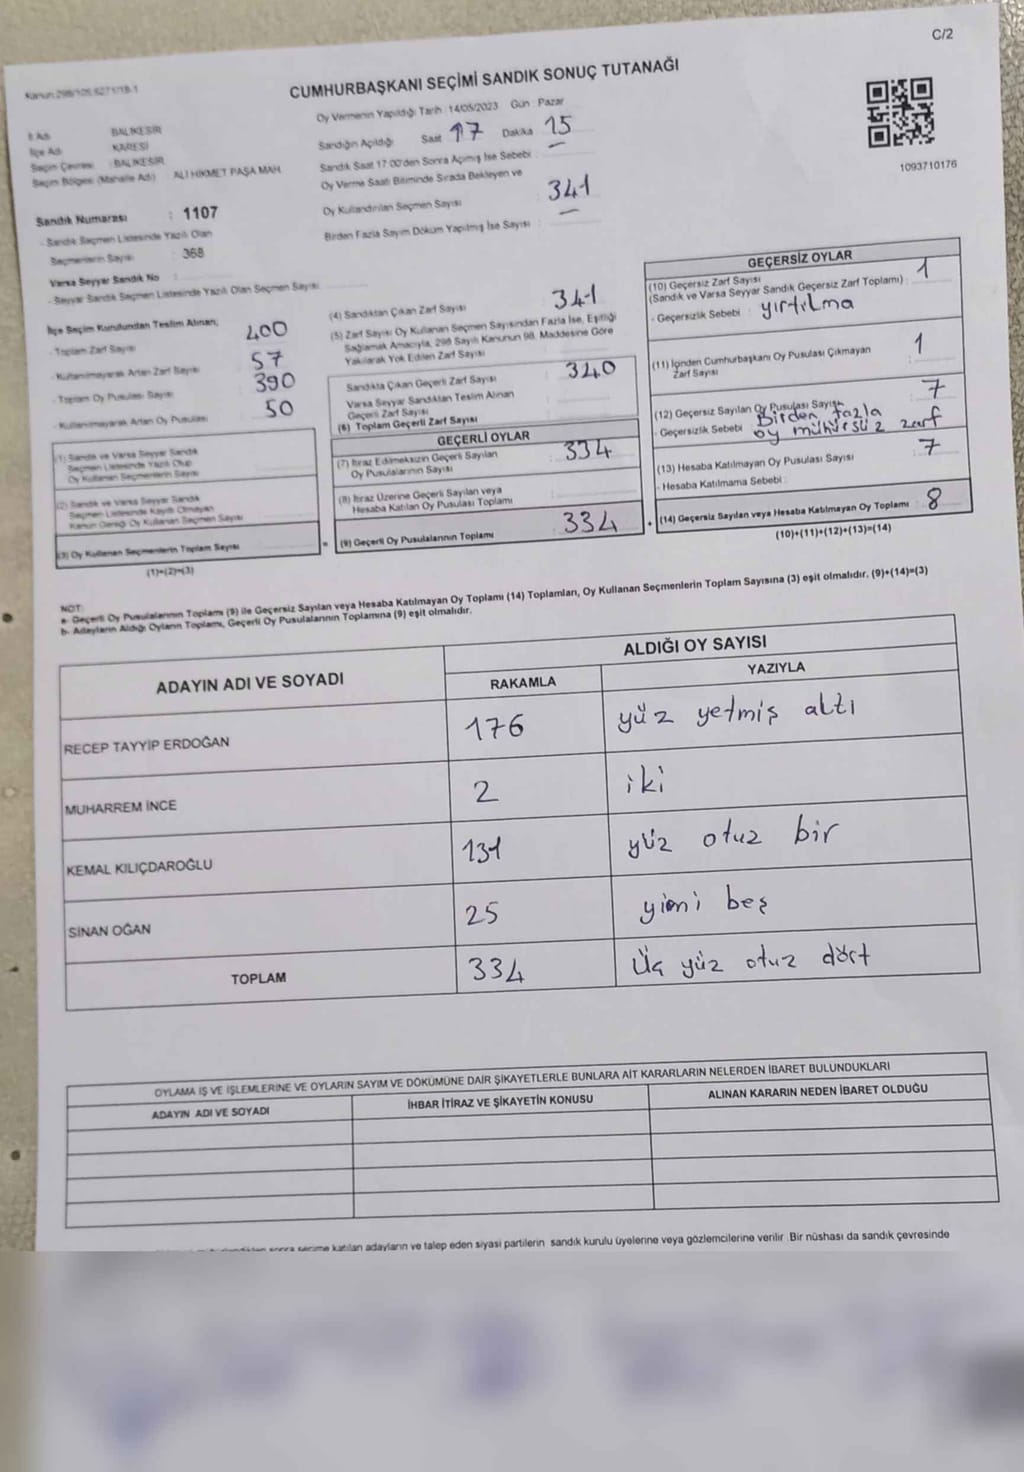 C/2
Kanun 298/105,6271/19-1
CUMHURBAŞKANI SEÇİMİ SANDIK SONUÇ TUTANAĞI
1093710176
İl Adı : BALIKESİR
İlçe Adı : KARESİ
Seçim Çevresi : BALIKESİR
Seçim Bölgesi (Mahalle Adı) : ALİ HİKMET PAŞA MAH.
Sandık Numarası : 1107
- Sandık Seçmen Listesinde Yazılı Olan
Seçmenlerin Sayısı : 368
Varsa Seyyar Sandık No :
- Seyyar Sandık Seçmen Listesinde Yazılı Olan Seçmen Sayısı
Oy Vermenin Yapıldığı Tarih : 14/05/2023 Gün : Pazar
Sandığın Açıldığı Saat 17 Dakika 15
Sandık Saat 17.00'den Sonra Açılmış İse Sebebi : -
Oy Verme Saati Bitiminde Sırada Bekleyen ve
Oy Kullandırılan Seçmen Sayısı : 341
Birden Fazla Sayım Döküm Yapılmış İse Sayısı : -
İlçe Seçim Kurulundan Teslim Alınan;
- Toplam Zarf Sayısı : 400
- Kullanılmayarak Artan Zarf Sayısı : 57
- Toplam Oy Pusulası Sayısı : 390
- Kullanılmayarak Artan Oy Pusulası : 50
(1) Sandık ve Varsa Seyyar Sandık
Seçmen Listesinde Yazılı Olup
Oy Kullanan Seçmenlerin Sayısı
(2) Sandık ve Varsa Seyyar Sandık
Seçmen Listesinde Kayıtlı Olmayan
Kanun Gereği Oy Kullanan Seçmen Sayısı
(3) Oy Kullanan Seçmenlerin Toplam Sayısı
(1)+(2)=(3)
(4) Sandıktan Çıkan Zarf Sayısı : 341
(5) Zarf Sayısı Oy Kullanan Seçmen Sayısından Fazla İse, Eşitliği
Sağlamak Amacıyla, 298 Sayılı Kanunun 98. Maddesine Göre
Yakılarak Yok Edilen Zarf Sayısı
Sandıkta Çıkan Geçerli Zarf Sayısı : 340
Varsa Seyyar Sandıktan Teslim Alınan
Geçerli Zarf Sayısı
(6) Toplam Geçerli Zarf Sayısı
GEÇERLİ OYLAR
(7) İtiraz Edilmeksizin Geçerli Sayılan
Oy Pusulalarının Sayısı : 334
(8) İtiraz Üzerine Geçerli Sayılan veya
Hesaba Katılan Oy Pusulası Toplamı
= (9) Geçerli Oy Pusulalarının Toplamı : 334
GEÇERSİZ OYLAR
(10) Geçersiz Zarf Sayısı
(Sandık ve Varsa Seyyar Sandık Geçersiz Zarf Toplamı) : 1
- Geçersizlik Sebebi : yırtılma
(11) İçinden Cumhurbaşkanı Oy Pusulası Çıkmayan
Zarf Sayısı : 1
(12) Geçersiz Sayılan Oy Pusulası Sayısı : 7
- Geçersizlik Sebebi Birden fazla
oy mühürsüz zarf
(13) Hesaba Katılmayan Oy Pusulası Sayısı : 7
- Hesaba Katılmama Sebebi :
+ (14) Geçersiz Sayılan veya Hesaba Katılmayan Oy Toplamı : 8
(10)+(11)+(12)+(13)=(14)
NOT:
a- Geçerli Oy Pusulalarının Toplamı (9) ile Geçersiz Sayılan veya Hesaba Katılmayan Oy Toplamı (14) Toplamları, Oy Kullanan Seçmenlerin Toplam Sayısına (3) eşit olmalıdır. (9)+(14)=(3)
b- Adayların Aldığı Oyların Toplamı, Geçerli Oy Pusulalarının Toplamına (9) eşit olmalıdır.
ADAYIN ADI VE SOYADI
ALDIĞI OY SAYISI
RAKAMLA YAZIYLA
RECEP TAYYİP ERDOĞAN 176 yüz yetmiş altı
MUHARREM İNCE 2 iki
KEMAL KILIÇDAROĞLU 131 yüz otuz bir
SİNAN OĞAN 25 yirmi beş
TOPLAM 334 Üç yüz otuz dört
OYLAMA İŞ VE İŞLEMLERİNE VE OYLARIN SAYIM VE DÖKÜMÜNE DAİR ŞİKAYETLERLE BUNLARA AİT KARARLARIN NELERDEN İBARET BULUNDUKLARI
ADAYIN ADI VE SOYADI İHBAR İTİRAZ VE ŞİKAYETİN KONUSU ALINAN KARARIN NEDEN İBARET OLDUĞU
sonra seçime katılan adayların ve talep eden siyasi partilerin sandık kurulu üyelerine veya gözlemcilerine verilir. Bir nüshası da sandık çevresinde